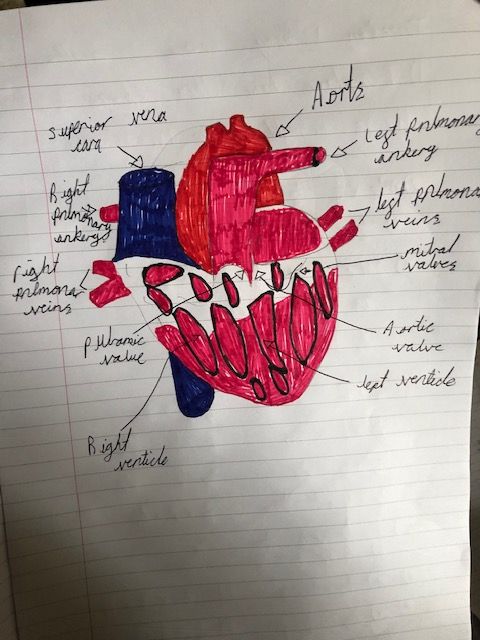 Aorta
superior vena
cava
left pulmonary
artery
Right
pulmonary
artery
left pulmonary
veins
right
pulmonary
veins
mitral
valves
pulmonic
valve
Aortic
valve
left venticle
Right
venticle